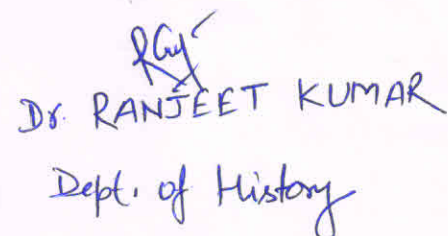 Dr. RANJEET KUMAR
Dept. of History